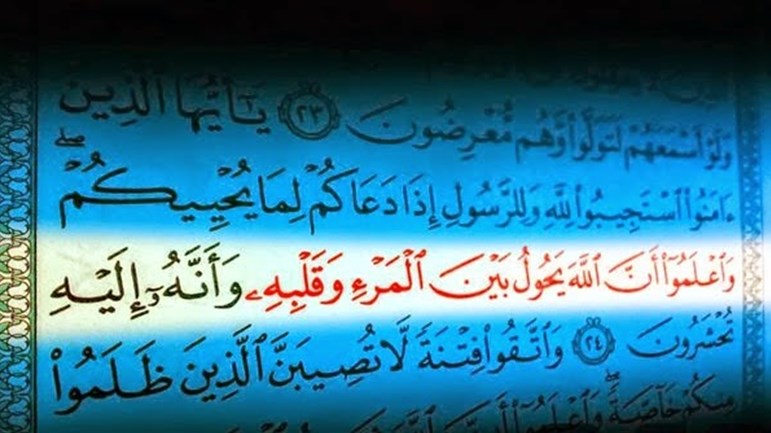 وَلَوْ أَسْمَعَهُمْ لَتَوَلَّوا۟ وَّهُم مُّعْرِضُونَ ٢٣ يَـٰٓأَيُّهَا ٱلَّذِينَ
ءَامَنُوا۟ ٱسْتَجِيبُوا۟ لِلَّهِ وَلِلرَّسُولِ إِذَا دَعَاكُمْ لِمَا يُحْيِيكُمْ ۖ
وَٱعْلَمُوٓا۟ أَنَّ ٱللَّهَ يَحُولُ بَيْنَ ٱلْمَرْءِ وَقَلْبِهِۦ وَأَنَّهُۥٓ إِلَيْهِ
تُحْشَرُونَ ٢٤ وَٱتَّقُوا۟ فِتْنَةً لَّا تُصِيبَنَّ ٱلَّذِينَ ظَلَمُوا۟
مِنكُمْ خَآصَّةً ۖ وَٱعْلَمُوٓا۟ أَنَّ ٱللَّهَ